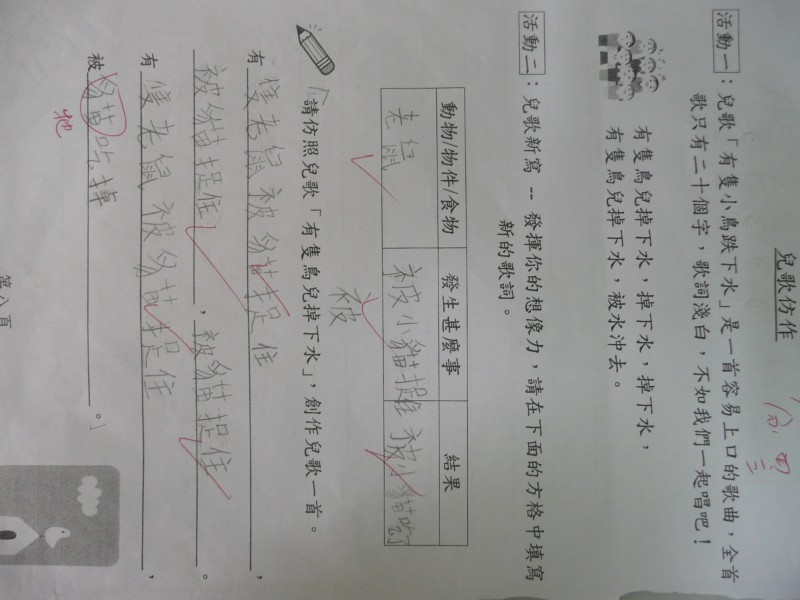 兒歌仿作
活動一：兒歌「有隻小鳥跌下水」是一首容易上口的歌曲，全首
歌只有二十個字，歌詞淺白，不如我們一起唱吧！
有隻鳥兒掉下水，掉下水，掉下水，
有隻鳥兒掉下水，被水沖去。
活動二：兒歌新寫 -- 發揮你的想像力，請在下面的方格中填寫
新的歌詞。
動物/物件/食物 發生甚麼事 結果
老鼠 被小貓捉 被小貓吃
被
請仿照兒歌「有隻鳥兒掉下水」，創作兒歌一首。
有隻老鼠被貓捉住，
被貓捉住，被貓捉住。
有隻老鼠被貓捉住，
被貓吃掉。」
牠
第八頁